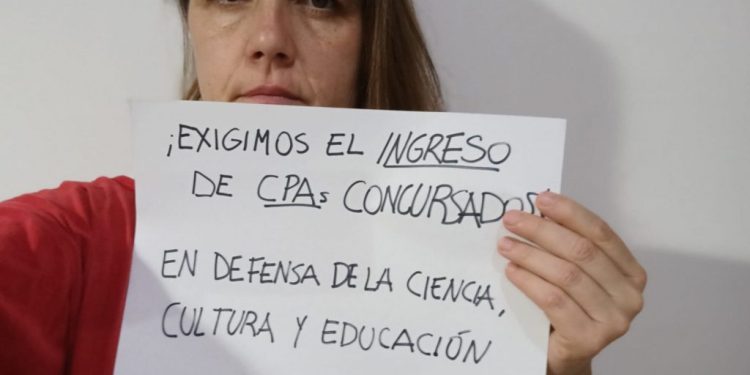 ¡EXIGIMOS EL INGRESO
DE CPAs CONCURSADOS!
EN DEFENSA DE LA CIENCIA,
CULTURA Y EDUCACIÓN